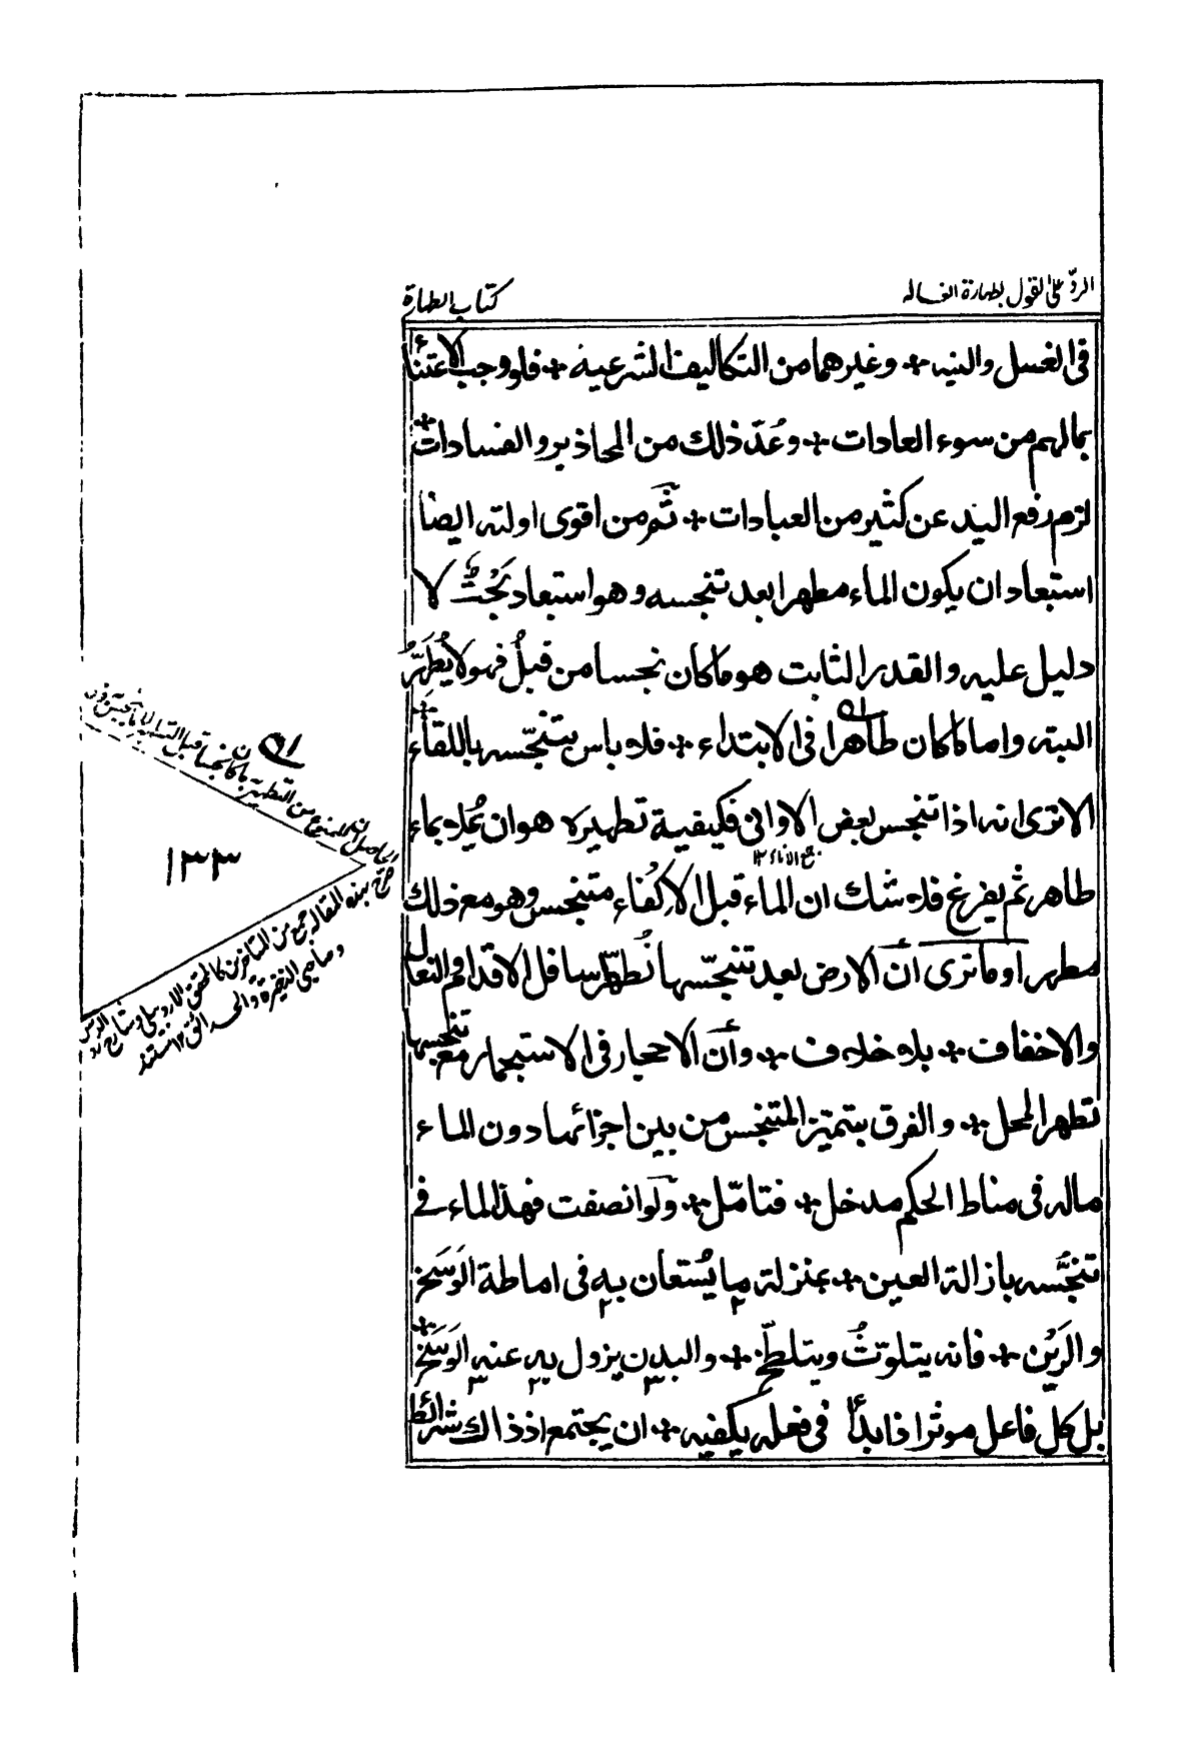 الردّ على القول بطهارة الغساله
كتاب الطهارة
فى الغسل والنيه + وغيرهما من التكاليف الشرعيه + فلو وجب الاعتناء
بمالهم من سوء العادات + وعُدّ ذلك من المحاذير والفسادات +
لزم رفع اليد عن كثير من العبادات + ثَمّ من اقوى اولته ايضا
استبعاد ان يكون الماء مطهرا بعد تنجسه وهو استبعاد بَحْتٌ لا
دليل عليه والقدر الثابت هو ما كان نجسا من قبلُ فهو لا يُطَهِّرُ
البته واما ما كان طاهرا فى الابتداء + فلا باس بتنجّسه باللقاء +
الا ترى انه اذا تنجس بعض الاوانى فكيفية تطهيره هو ان يُملاء بماء
طاهر ثم يفرغ فلا شك ان الماء قبل الاِكْفاء متنجس وهو مع ذلك
مطهر او ما ترى أن الارض بعد تنجّسها تُطهّر اسافل الاقدام والنعال
والاخفاف + بلا خلاف + وأن الاحجار فى الاستجمار مع تنجسها
تطهر المحل + والفرق بتميّز المتنجس من بين اجزائها دون الماء
ماله فى مناط الحكم مدخل + فتامّل + ولَو انصفت فهذا الماء فى
تنجُّسه بازالة العين + بمنزلة ما يُستعان به فى اماطة الوَسَخ
والرَيْن + فانه يتلوّثُ ويتلطّخ + والبدن يزول به عنه الوَسَخ +
بل كل فاعل موثر اذا بدأ فى فعله يكفيه + ان يجتمع اذ ذاك شرائط
جمع الاناء ١٢
١٣٣
الحاصل ان الممنوع من التطهير ما كان نجسا قبل التطهير لا ما ينجس
صرّح بهذه المقاله جمع من المتاخرين كالمحقق الاردبيلى وشارح الدروس
وصاحبى الذخيرة والحدائق ١٢